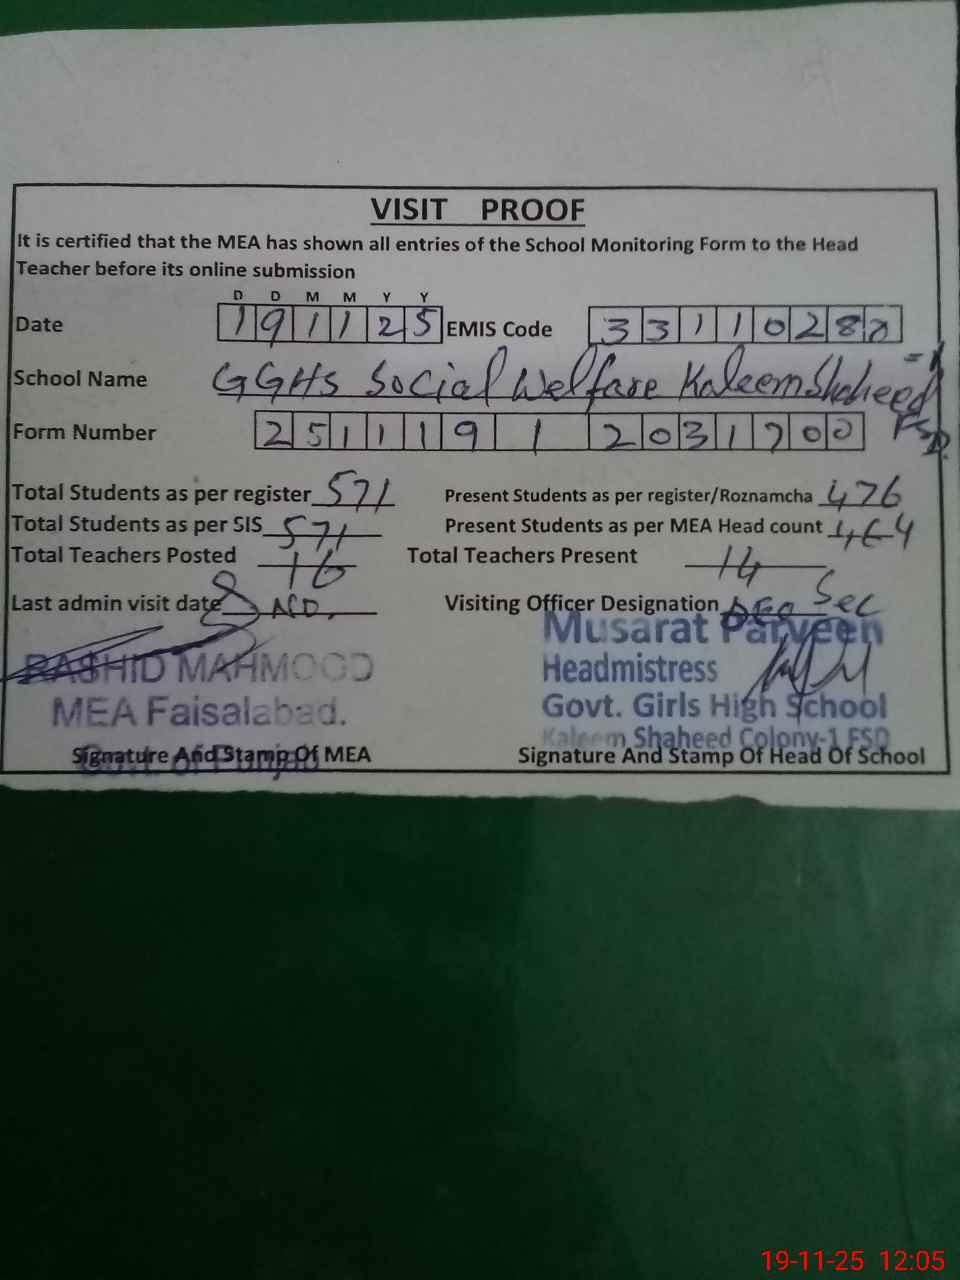 VISIT PROOF
It is certified that the MEA has shown all entries of the School Monitoring Form to the Head
Teacher before its online submission
D D M M Y Y
Date 1 9 1 1 2 5 EMIS Code 3 3 1 1 0 2 8 0
School Name GGHS Social Welfare Kaleem Shaheed -1
FSD.
Form Number 2 5 1 1 1 9 1 2 0 3 1 7 0 0
Total Students as per register 571 Present Students as per register/Roznamcha 476
Total Students as per SIS 571 Present Students as per MEA Head count 464
Total Teachers Posted 16 Total Teachers Present 14
Last admin visit date Visiting Officer Designation DEO Sec
RASHID MAHMOOD
MEA Faisalabad.
Govt. of Punjab
Signature And Stamp Of MEA
Musarat Parveen
Headmistress
Govt. Girls High School
Kaleem Shaheed Colony-1 FSD
Signature And Stamp Of Head Of School
19-11-25 12:05